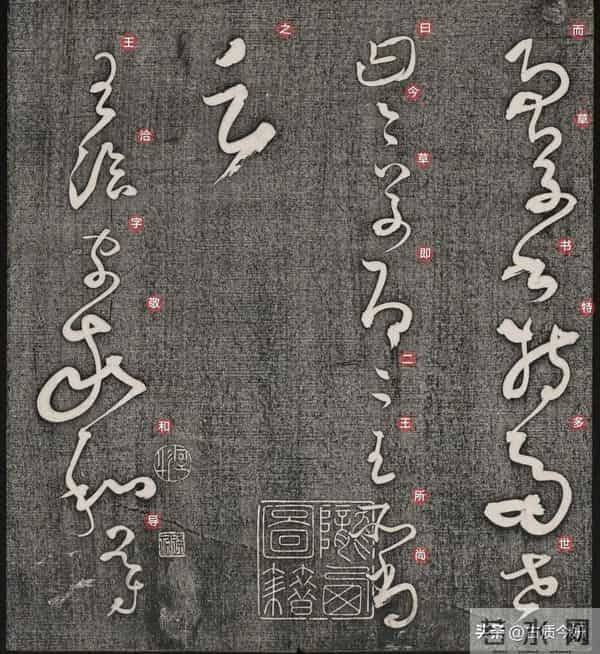 而草书特多世
曰今草即二王所尚
之
王洽字敬和导
头条 @古质今妍